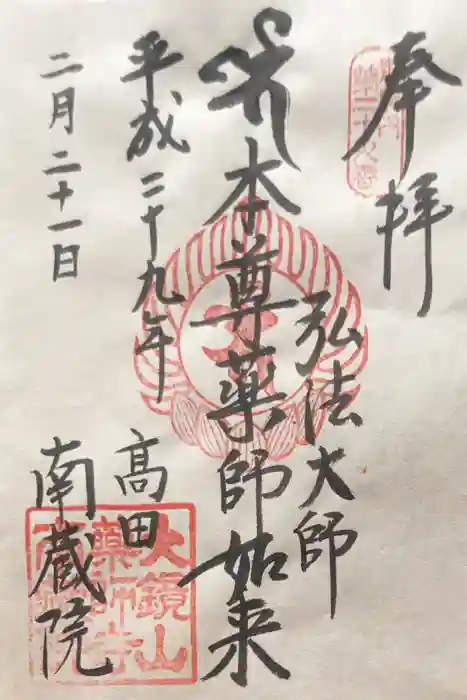 奉拝
弘法大師
本尊薬師如来
平成二十九年
二月二十一日
高田
南蔵院
大鏡山
薬師寺